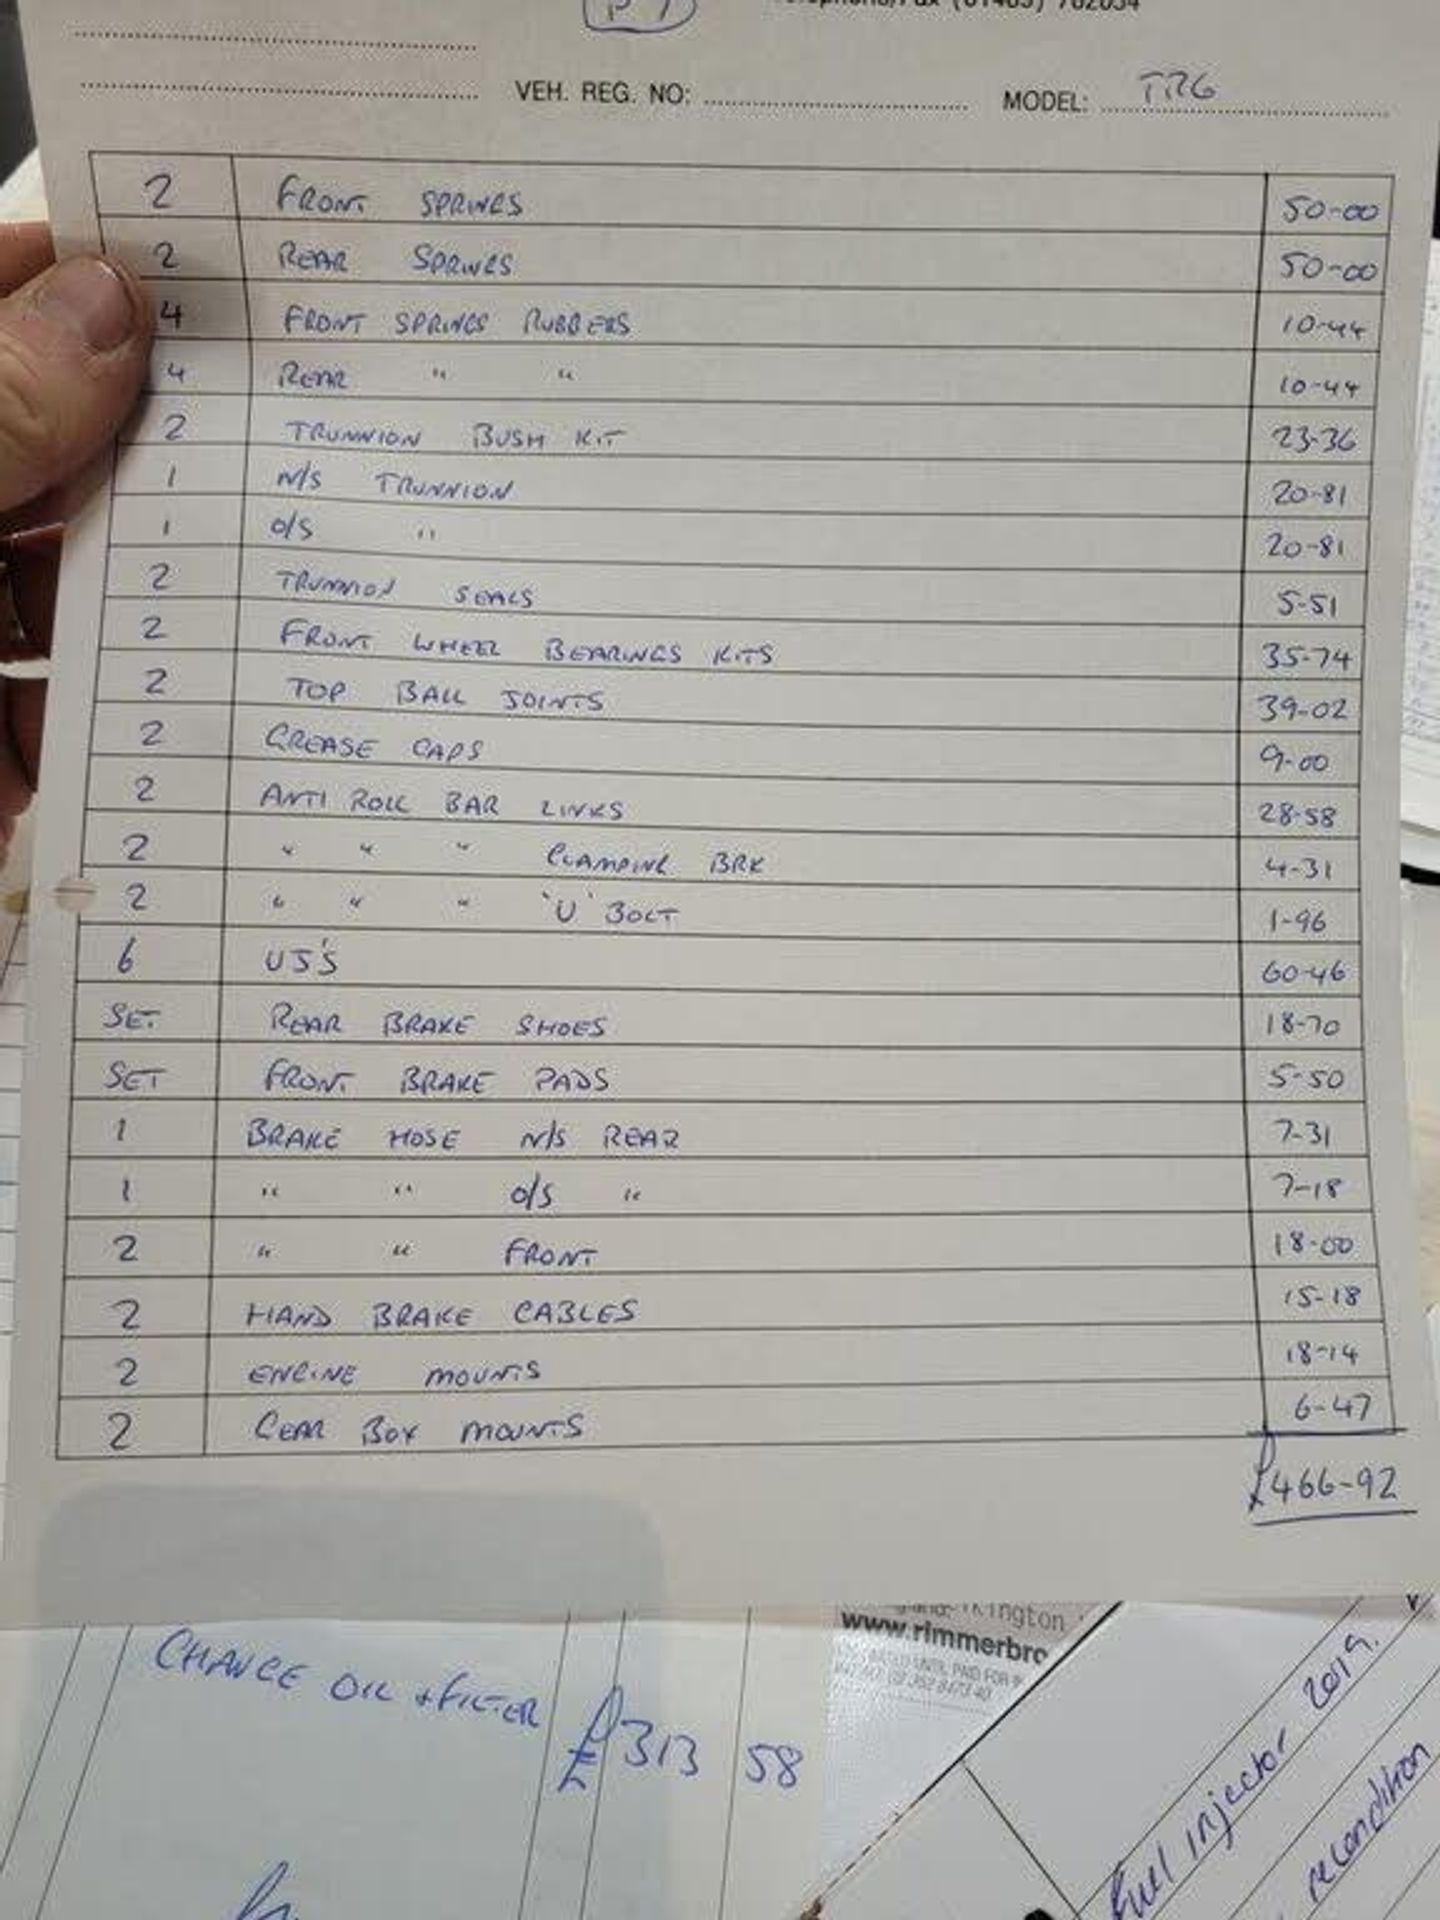 P 1
Telephone/Fax (01485) 762054
VEH. REG. NO: MODEL: TR6
2 FRONT SPRINGS 50-00
2 REAR SPRINGS 50-00
4 FRONT SPRINGS RUBBERS 10-44
4 REAR " " 10-44
2 TRUNNION BUSH KIT 23-36
1 N/S TRUNNION 20-81
1 O/S " 20-81
2 TRUNNION SEALS 5-51
2 FRONT WHEEL BEARINGS KITS 35-74
2 TOP BALL JOINTS 39-02
2 GREASE CAPS 9-00
2 ANTI ROLL BAR LINKS 28-58
2 " " " CLAMPING BRK 4-31
2 " " " 'U' BOLT 1-96
6 UJ'S 60-46
SET REAR BRAKE SHOES 18-70
SET FRONT BRAKE PADS 5-50
1 BRAKE HOSE N/S REAR 7-31
1 " " O/S " 7-18
2 " " FRONT 18-00
2 HAND BRAKE CABLES 15-18
2 ENGINE MOUNTS 18-14
2 GEAR BOX MOUNTS 6-47
£466-92
CHANGE OIL + FILTER £313 58
www.rimmerbro
fuel injector 2019.
recondition